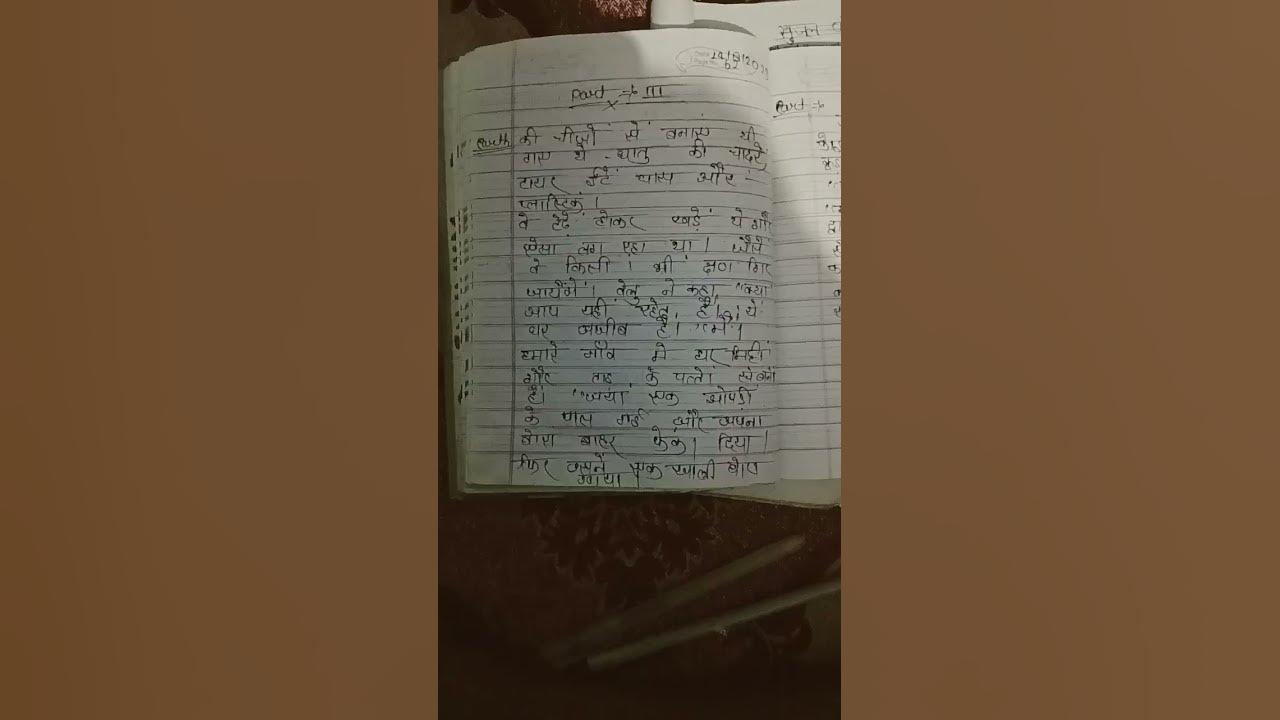 Part → III
की चीजों से बनाए थी
गए थे - धातु की चादरें
टायर ईटें घास और -
प्लास्टिक ।
वे टेढे होकर खड़ें थे और
ऐसा लग रहा था । जैसे
वे किसी । भी क्षण गिर
जायेंगें । वेलु ने कहा "क्या
आप यही रहेते हैं। ये
घर अजीब है।
हमारे गाँव मे घर मिट्टी
और ताड के पत्तो से बने
है। "जया एक झोपडी
के पास गई और अपना
बोरा बाहर फेक । दिया ।
फिर उसने एक खाली बोरा
सृजन
Part →